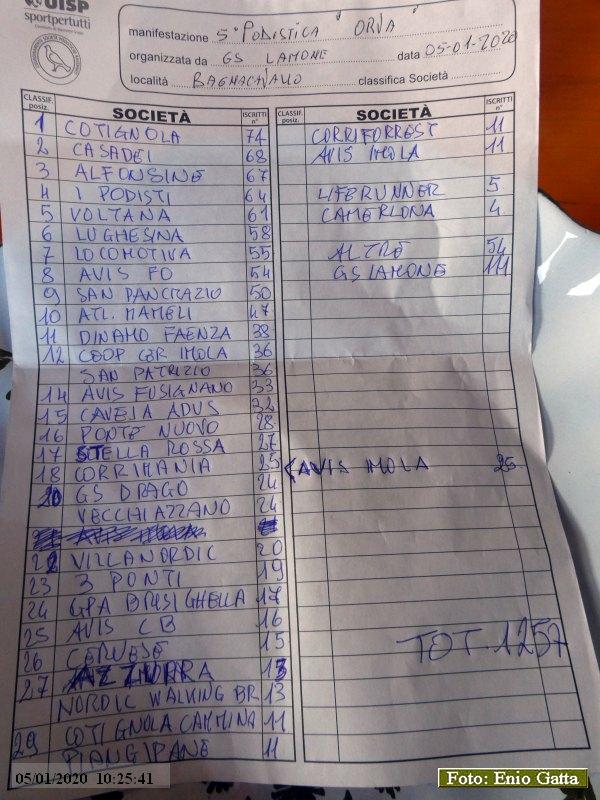 UISP
sportpertutti
manifestazione 5° PODISTICA "ORVA"
organizzata da GS LAMONE data 05-01-2020
località BAGNACAVALLO classifica Società
CLASSIF. posiz. SOCIETÀ ISCRITTI n°
1 COTIGNOLA 74
2 CASADEI 68
3 ALFONSINE 67
4 I PODISTI 64
5 VOLTANA 61
6 LUGHESINA 58
7 LOCOMOTIVA 55
8 AVIS FO 54
9 SAN PANCRAZIO 50
10 ATL. MAMELI 47
11 DINAMO FAENZA 38
12 COOP CER IMOLA 36
SAN PATRIZIO 36
14 AVIS FUSIGNANO 33
15 CAVEJA ADUS 32
16 PONTE NUOVO 28
17 STELLA ROSSA 27
18 CORRIMANIA 25
20 GS DRAGO 24
VECCHIAZZANO 24
22 VILLANORDIC 20
23 3 PONTI 19
24 GPA BRISIGHELLA 17
25 AVIS CB 16
26 CERVESE 15
27 AZZURRA 13
NORDIC WALKING BR 13
29 COTIGNOLA CAMMINA 11
PIANGIPANE 11
CLASSIF. posiz. SOCIETÀ ISCRITTI n°
CORRIFORREST 11
AVIS IMOLA 11
LIFERUNNER 5
CAMERLONA 4
ALTRE 54
GS LAMONE 111
<AVIS IMOLA 25
TOT. 1257
05/01/2020 10:25:41
Foto: Enio Gatta